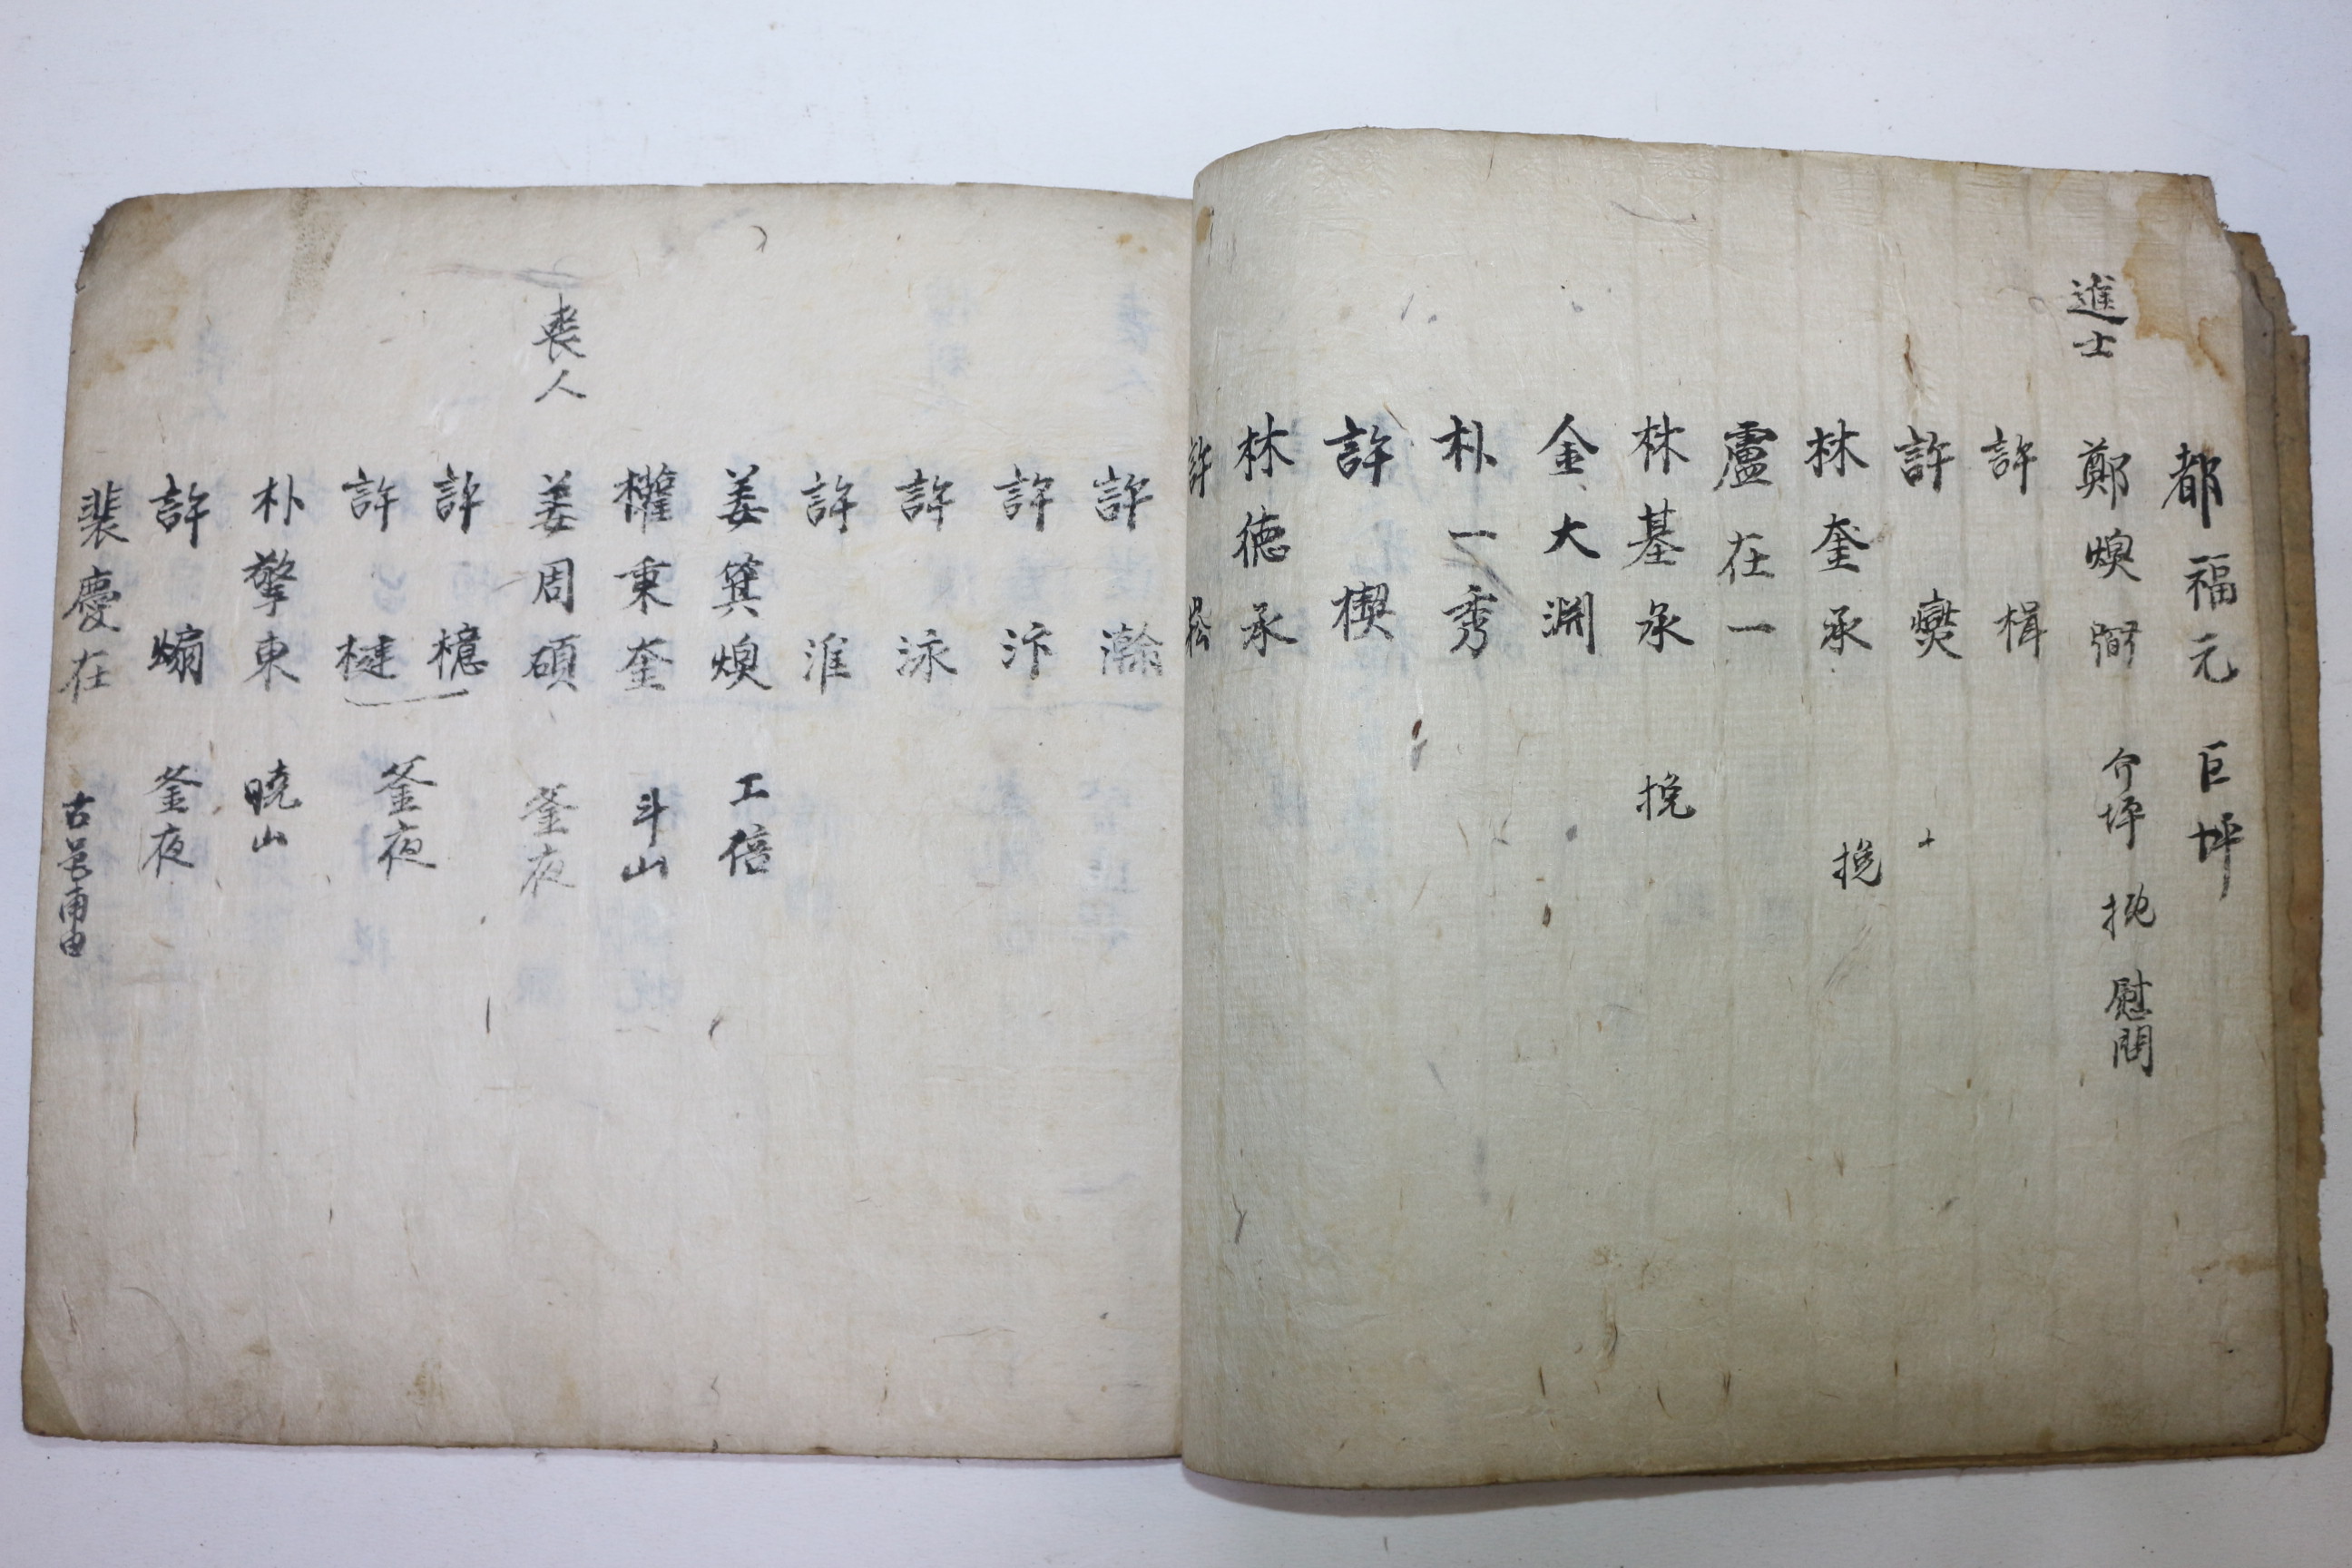 都福元 巨坪
進士 鄭煥 介坪 挽 慰問
許楫
許爕
林奎承 挽
盧在一
林基承 挽
金大淵
朴一秀
許楔
林德承
許崧
許瀚
許汴
許泳
許淮
姜箕煥 工倍
權秉奎 斗山
喪人 姜周碩 釜夜
許檍
許槤 釜夜
朴擎東 暁山
許煽 釜夜
裴慶在 古邑面由